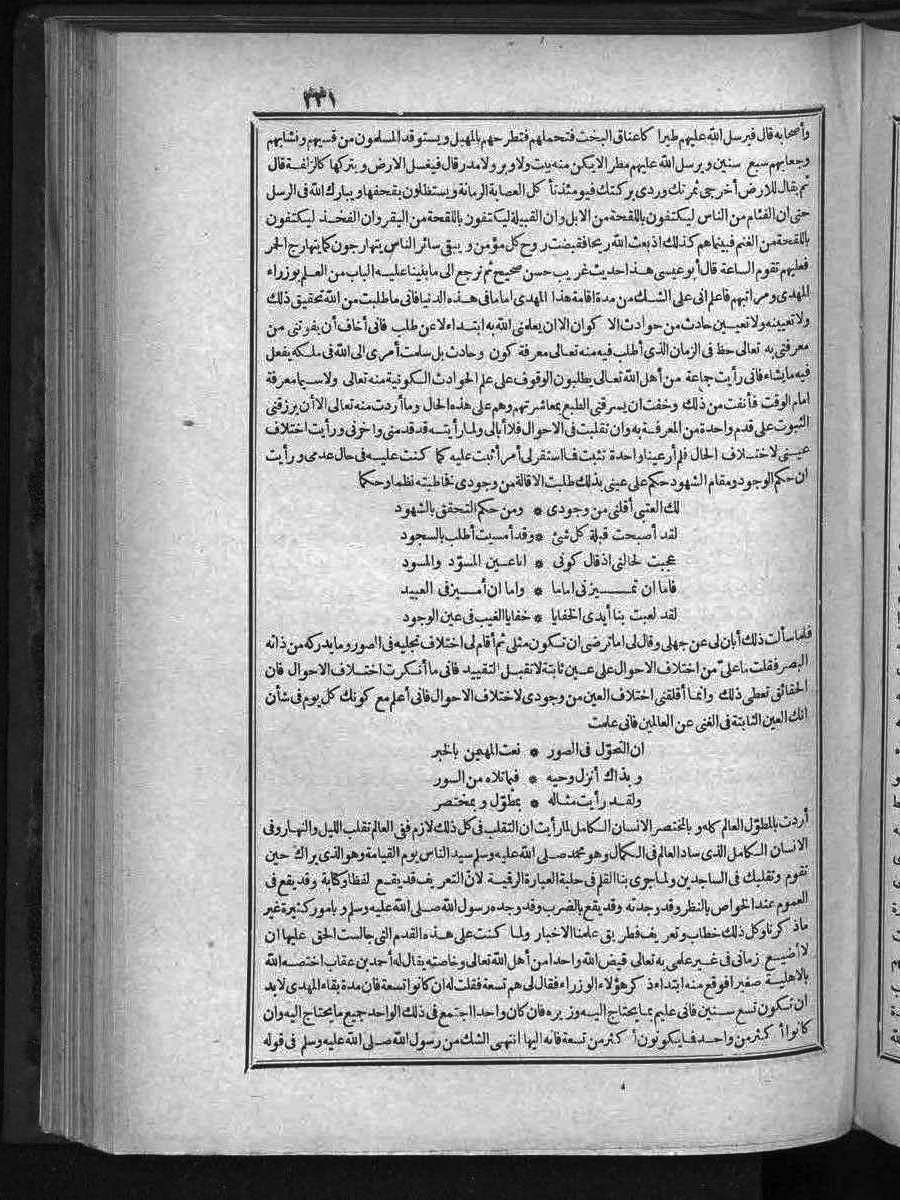 ٣٣١
وأصحابه قال فيرسل الله عليهم طيرا كأعناق البخت فتحملهم فتطرحهم بالمهبل ويستوقد المسلمون من قسيهم ونشابهم
وجعابهم سبع سنين ويرسل الله عليهم مطرا لا يكن منه بيت ولا وبر ولا مدر قال فيغسل الارض ويتركها كالزلفة قال
ثم يقال للارض أخرجى ثمرتك وردى بركتك فيومئذ تأكل العصابة الرمانة ويستظلون بقحفها ويبارك الله فى الرسل
حتى ان الفئام من الناس ليكتفون باللقحة من الابل وان القبيلة ليكتفون باللقحة من البقر وان الفخذ ليكتفون
باللقحة من الغنم فبينماهم كذلك اذ بعث الله ريحا فقبضت روح كل مؤمن ويبقى سائر الناس يتهارجون كما يتهارج الحمر
فعليهم تقوم الساعة قال أبو عيسى هذا حديث غريب حسن صحيح ثم نرجع الى ما بنينا عليه الباب من العلم بوزراء
المهدى ومراتبهم فاعلم انى على الشك من مدة اقامة هذا المهدى اماما فى هذه الدنيا فانى ما طلبت من الله تحقيق ذلك
ولا تعيينه ولا تعيين حادث من حوادث الا كوان الا ان يعلمنى الله به ابتداء لا عن طلب فانى أخاف أن يفوتنى من
معرفتى به تعالى حظ فى الزمان الذى أطلب فيه منه تعالى معرفة كون وحادث بل سلمت أمرى الى الله فى ملكه يفعل
فيه ما يشاء فانى رأيت جماعة من أهل الله تعالى يطلبون الوقوف على علم الحوادث الكونية منه تعالى ولا سيما معرفة
امام الوقت فأنفت من ذلك وخفت ان يسرقنى الطبع بمعاشرتهم وهم على هذه الحال وما أردت منه تعالى الا أن يرزقنى
الثبوت على قدم واحدة من المعرفة به وان تقلبت فى الاحوال فلا أبالى ولما رأيته قد قدمنى وأخرنى ورأيت اختلاف
عينى لاختلاف الحال فلم أر عينا واحدة تثبت فما استقر لى أمر أثبت عليه كما كنت عليه فى حال عدمى ورأيت
ان حكم الوجود ومقام الشهود حكم على عينى بذلك طلبت الاقالة من وجودى فخاطبته نظما وحكما
لك العتبى أقلنى من وجودى * ومن حكم التحقق بالشهود
لقد أصبحت قبلة كل شئ * وقد أمسيت أطلب بالسجود
عجبت لحالتى اذ قال كونى * انا عين المسوّد والمسود
فاما ان تميزنى اماما * واما ان أميز فى العبيد
لقد لعبت بنا أيدى الخفايا * خفايا الغيب فى عين الوجود
فلما سألت ذلك أبان لى عن جهلى وقال لى اما ترضى ان تكون مثلى ثم أقام لى اختلاف تجليه فى الصور وما يدركه من ذاته
البصر فقلت ما علىّ من اختلاف الاحوال على عين ثابتة لا تقبل التقييد فانى ما أنكرت اختلاف الاحوال فان
الحقائق تعطى ذلك وانما أقلقنى اختلاف العين من وجودى لاختلاف الاحوال فانى أعلم مع كونك كل يوم فى شأن
انك العين الثابتة فى الغنى عن العالمين فانى علمت
ان التحوّل فى الصور * نعت المهيمن بالخبر
وبذاك أنزل وحيه * فيما تلاه من السور
ولقد رأيت مثاله * بمطوّل وبمختصر
أردت بالمطوّل العالم كله وبالمختصر الانسان الكامل لما رأيت ان التقلب فى كل ذلك لازم ففى العالم تقلب الليل والنهار وفى
الانسان الكامل الذى ساد العالم فى الكمال وهو محمد صلى الله عليه وسلم سيد الناس يوم القيامة وهو الذى يراك حين
تقوم وتقلبك فى الساجدين ولما جرى بنا القلم فى حلبة العبارة الرقمية لانّ التعريف قد يقع لفظا وكتابة وقد يقع فى
العموم عند الخواص بالنظر وقد وجدته وقد يقع بالضرب وقد وجده رسول الله صلى الله عليه وسلم وبامور كثيرة غير
ما ذكرنا وكل ذلك خطاب وتعريف فطريق علمنا الاخبار ولما كنت على هذه القدم التى جالست الحق عليها ان
لا أضيع زمانى فى غير علمى به تعالى قيض الله واحدا من أهل الله تعالى وخاصته يقال له أحمد بن عقاب اختصه الله
بالاهلية صغيرا فوقع منه ابتداء ذكر هؤلاء الوزراء فقال لى هم تسعة فقلت له ان كانوا تسعة فان مدة بقاء المهدى لا بد
ان تكون تسع سنين فانى عليم بما يحتاج اليه وزيره فان كان واحدا اجتمع فى ذلك الواحد جميع ما يحتاج اليه وان
كانوا أكثر من واحد فما يكونون أكثر من تسعة فانه اليها انتهى الشك من رسول الله صلى الله عليه وسلم فى قوله